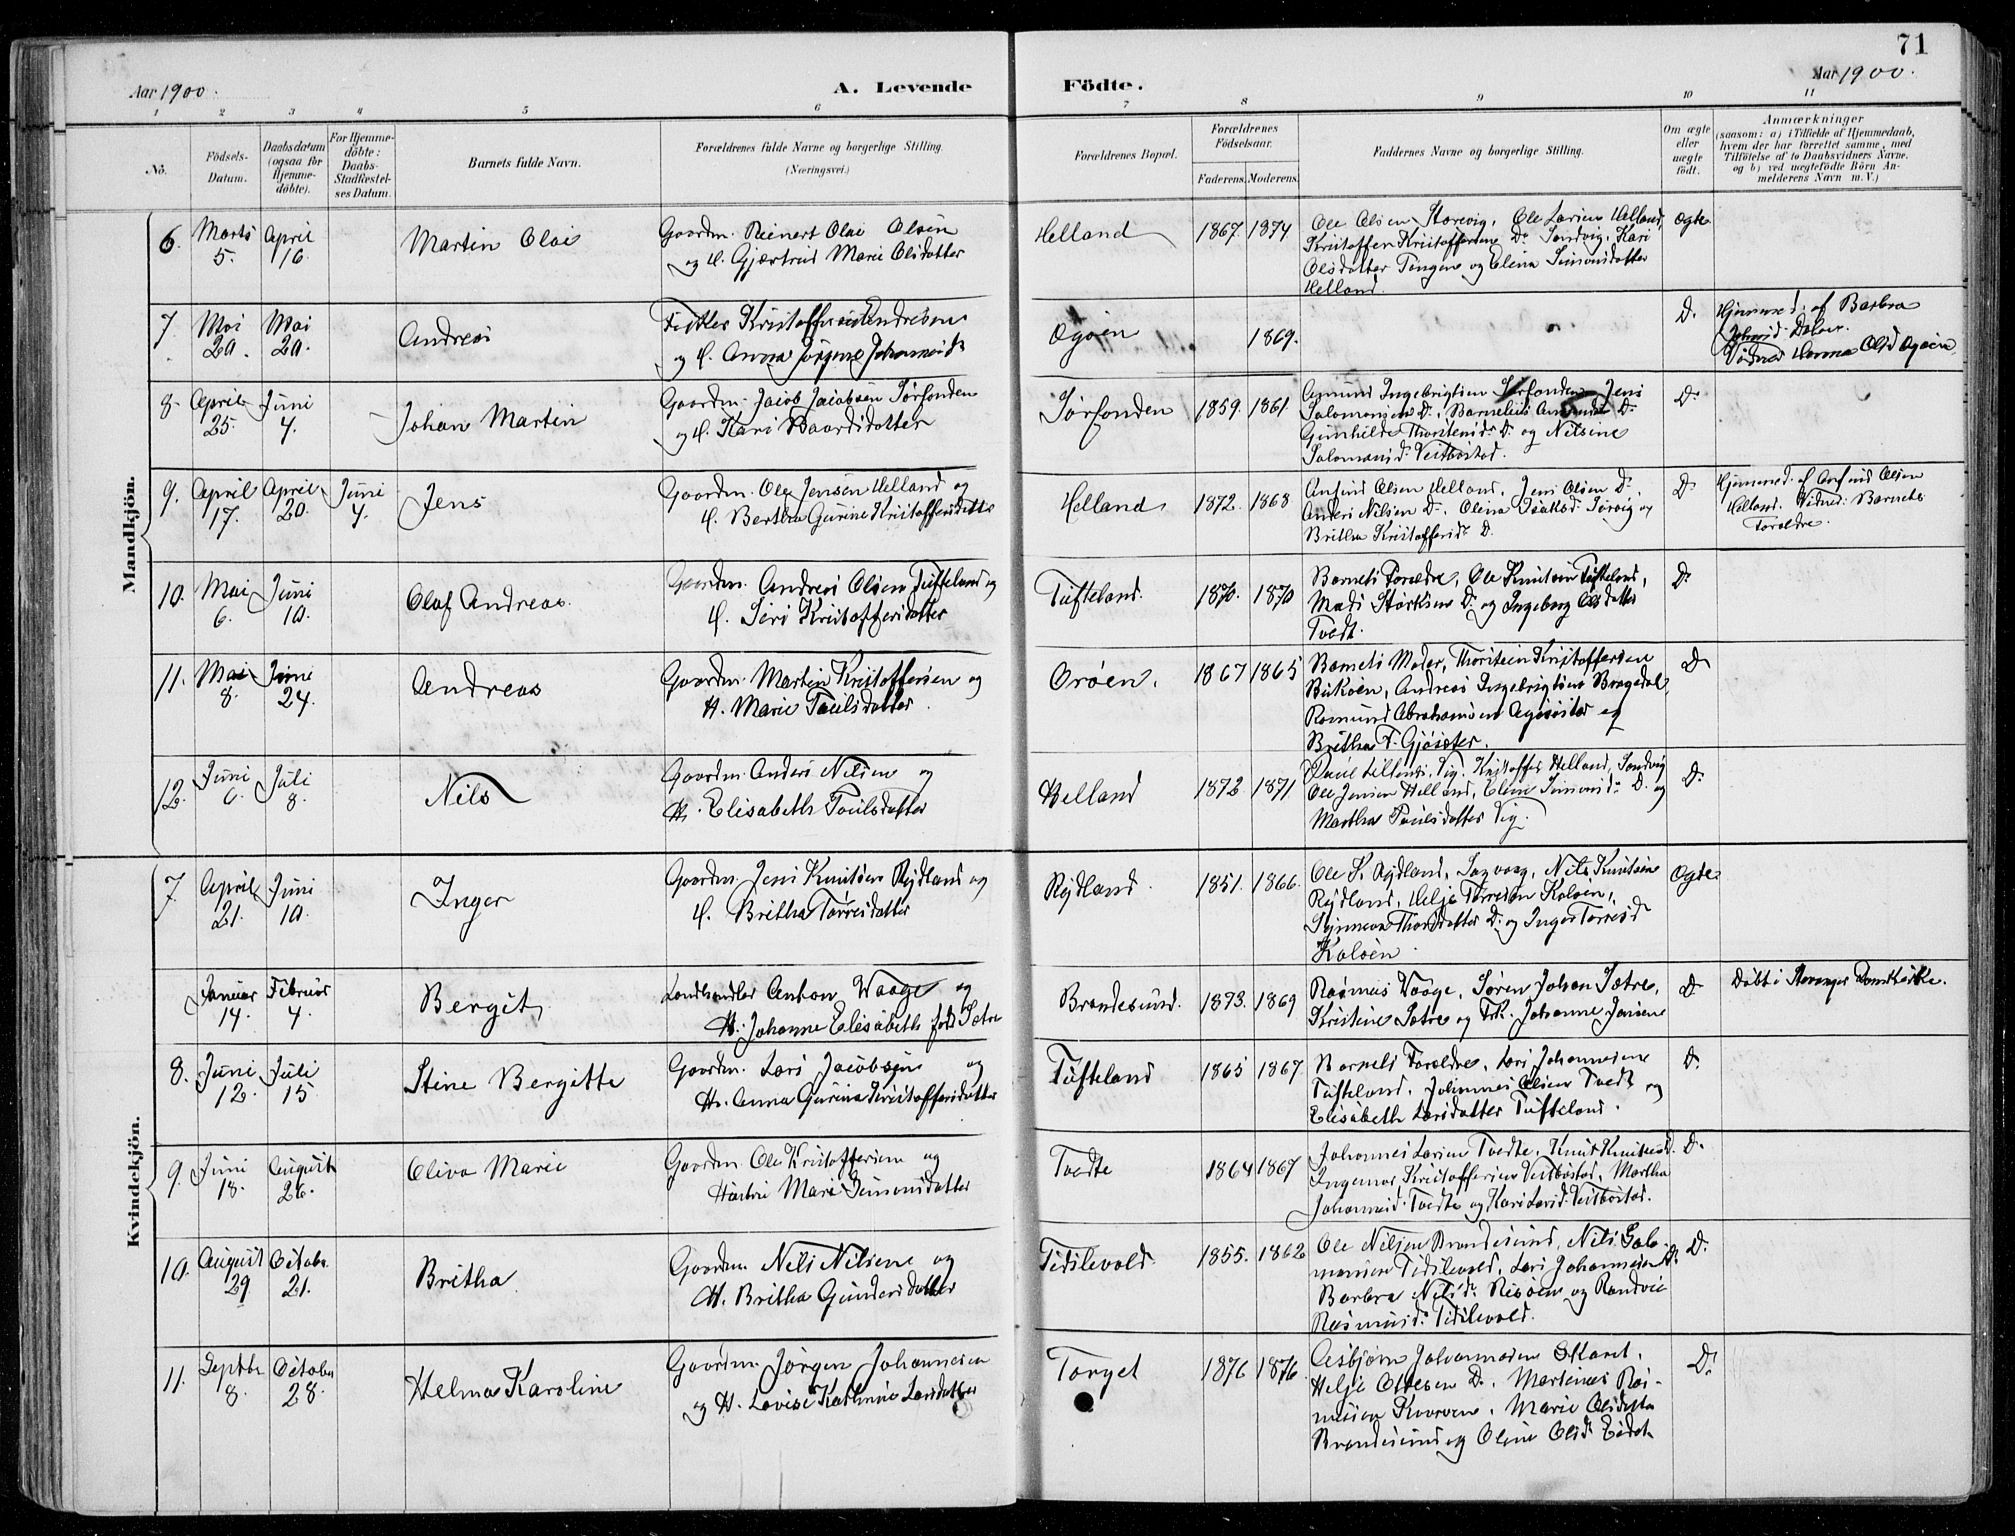 71
Aar 1900.
A. Levende
Födte.
Aar 1900.
1 2 3 4 5 6 7 8 9 10 11
No.
Födsels-Datum.
Daabsdatum (ogsaa for Hjemme-döbte).
For Hjemme-döbte: Daabs-Stadfæstel-ses Datum.
Barnets fulde Navn.
Forældrenes fulde Navne og borgerlige Stilling.
(Næringsvei.)
Forældrenes Bopæl.
Forældrenes Födselsaar.
Faderens. Moderens.
Faddernes Navne og borgerlige Stilling.
Om ægte eller uægte födt.
Anmærkninger
(saasom: a) i Tilfælde af Hjemmedaab,
hvem der har forrettet samme, med
Tilföielse af to Daabsvidners Navne.
og b) ved uægtefödte Börn An-
melderens Navn m. V.)
Mandkjön.
6. Marts 5. April 16. Martin Olai
Gaardm. Reinert Olai Olsen
og H. Gjærtrud Marie Olsdatter
Helland 1867. 1874
Ole Olsen Storevig, Ole Larsen Helland,
Kristoffer Kristoffersen Do Sandvig, Kari
Olsdatter Tangen og Elina Simonsdatter
Helland.
Ægte
7. Mai 20. Mai 20. Andreas
Kristoffersen Andresen
og H. Anna Jörgine Johannesdr
Ogöen 1869.
D.
Hjemmed. af Barbra
Vidner Hanna Olsd Ogöen
8. April 25. Juni 4. Johan Martin
Gaardm. Jacob Jacobsen Sörfonden
og H. Kari Baardsdatter
Sörfonden 1859. 1861.
Amund Ingebrigtsen Sörfonden, Jens
Salomonsen Do, Barnelius Do
Gunhilde Thorstensdr Do og Nilsine
Salomonsdr Vestböstad.
D.
9. April 17. April 20. Juni 4. Jens
Gaardm. Ole Jensen Helland og
H. Bertha Gurine Kristoffersdatter
Helland 1872. 1868
Anfind Olsen Helland, Jens Olsen Do,
Anders Nilsen Do, Olena Isaksdr Sörvig og
Britha Kristoffersdr D.
D.
Hjemmed. af Anfind Olsen
Helland. Vidner: Barnets
Foreldre.
10. Mai 6. Juni 10. Olaf Andreas.
Gaardm. Andreas Olsen Tufteland og
H. Siri Kristoffersdatter
Tufteland. 1870. 1870
Barnets Foreldre, Ole Knutsen Tufteland,
Mads Störksen Do og Ingeborg Olsdatter
Tvedt.
D.
11. Mai 8. Juni 24. Andreas
Gaardm. Martin Kristoffersen og
H. Marie Poulsdatter.
Oröen. 1867 1865
Barnets Moder, Thorstein Kristoffersen
Andreas Ingebrigtsen Bragedal,
Romund Abrahamsen og
Britha T. Gjösæter.
D.
12. Juni 6. Juli 8. Nils
Gaardm. Anders Nilsen og
H. Elisabeth Poulsdatter
Helland 1872. 1871
Vig. Kristoffer Helland, Sandvig
Ole Jensen Helland, Elina Simonsdr D. og
Martha Poulsdatter Vig.
D.
Kvindekjön.
7. April 21. Juni 10. Inger
Gaardm. Jens Knutsen Rydland og
H. Britha Torresdatter
Rydland. 1851. 1866.
Ole K. Rydland, Nils Knutsen
Rydland, Helje Torresen Kalöen,
Thorsdatter D. og Inger Torresdr
Kalöen.
Ægte
Januar 14. Februar 4. Bergit
Landhandler Anton Waage og
H. Johanne Elisabeth föd Sætre
Brandesund. 1873. 1869
Rasmus Vaage, Sören Johan Sætre,
Kristine Sætre og Frk. Johanne Jansen
D.
Döbt i Stavanger Domkirke.
8. Juni 12. Juli 15. Stine Bergitte
Gaardm. Lars Jacobsen og
H. Anna Gurina Kristoffersdatter
Tufteland 1865 1867
Barnets Foreldre, Lars Johannesen
Tufteland, Johannes Olsen Tvedt og
Elisabeth Larsdatter Tufteland.
D.
9. Juni 18. August 26. Oliva Marie
Gaardm. Ole Kristoffersen og
Hustru Mari Simonsdatter
Tvedte 1864 1867
Johannes Larsen Tvedte, Knut Knutsen D.
Ingemar Kristoffersen Vestböstad, Martha
Johannesdr Tvedte og Kari Larsdr Vestböstad.
D.
10. August 29. October 21. Britha.
Gaardm. Nils Nilsen og
H. Britha Gundersdatter
Tidslevold. 1855. 1862
Ole Nilsen Brandesund, Nils Salo-
monsen Tidslevold, Lars Johannesen D.
Barbra Nilsdr Risöen og Randvei
Rasmusdr Tidslevold.
D.
11. Septbr 8. October 28. Helma Karoline
Gaardm. Jörgen Johannesen
og H. Lovise Kathrine Larsdatter
Torget 1876 1876.
Asbjörn Johannesen
Helje Ottesen D., Martinus Ras-
musen Kvarven, Marie Olsdatter
Brandesund og Oline Olsdr
D.